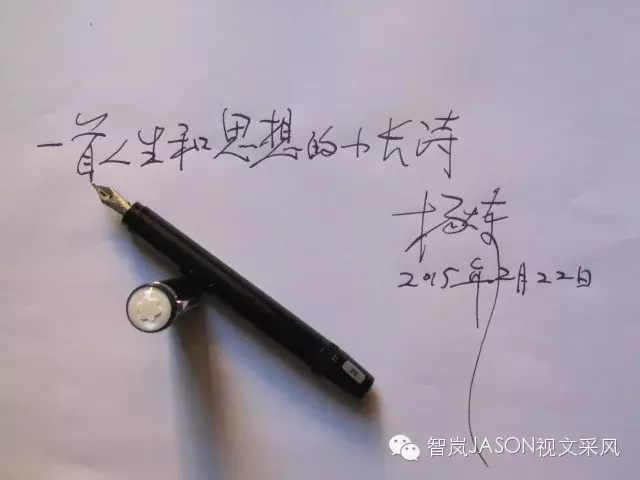 一首人生和思想的小长诗
2015年2月22日
智岚JASON视文采风